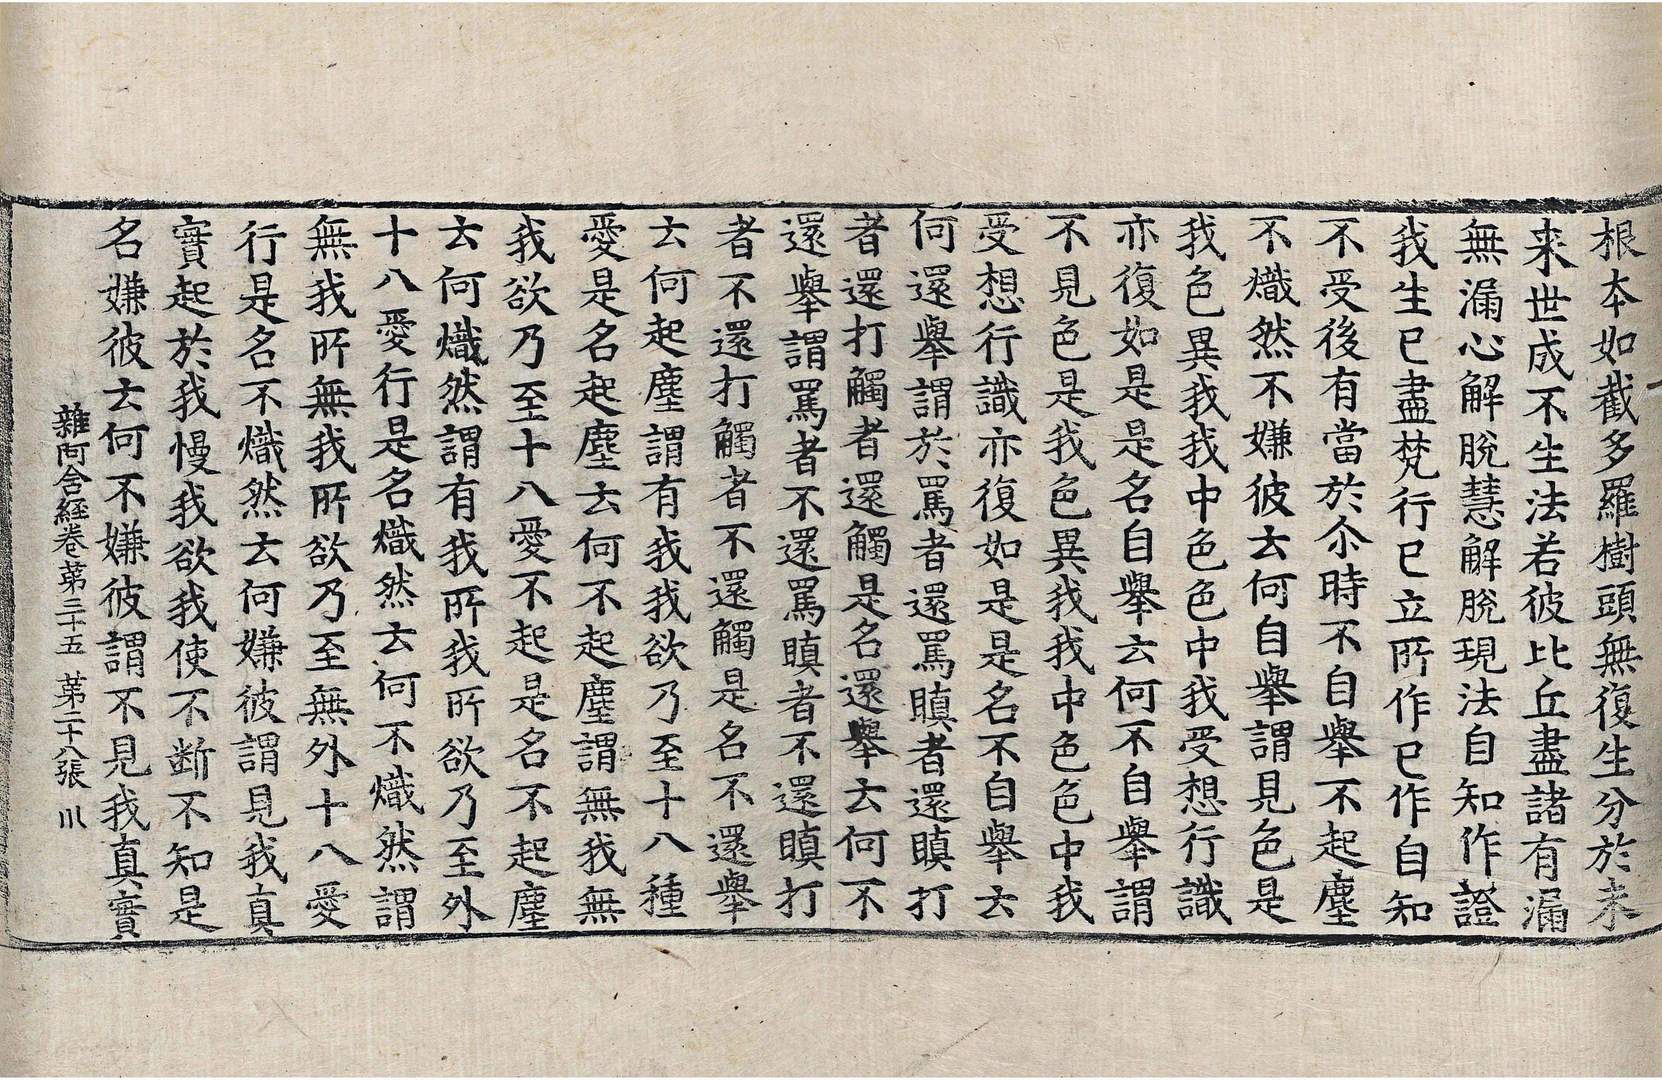 根本如截多羅樹頭無復生分於未
来世成不生法若彼比丘盡諸有漏
無漏心解脫慧解脫現法自知作證
我生已盡梵行已立所作已作自知
不受後有當於尒時不自擧不起塵
不熾然不嫌彼云何自擧謂見色是
我色異我我中色色中我受想行識
亦復如是是名自擧云何不自擧謂
不見色是我色異我我中色色中我
受想行識亦復如是是名不自擧云
何還擧謂於罵者還罵瞋者還瞋打
者還打觸者還觸是名還擧云何不
還擧謂罵者不還罵瞋者不還瞋打
者不還打觸者不還觸是名不還擧
云何起塵謂有我我欲乃至十八種
愛是名起塵云何不起塵謂無我無
我欲乃至十八愛不起是名不起塵
云何熾然謂有我所我所欲乃至外
十八愛行是名熾然云何不熾然謂
無我所無我所欲乃至無外十八愛
行是名不熾然云何嫌彼謂見我真
實起於我慢我欲我使不断不知是
名嫌彼云何不嫌彼謂不見我真實
雜阿含經卷苐三十五 苐二十八張 川